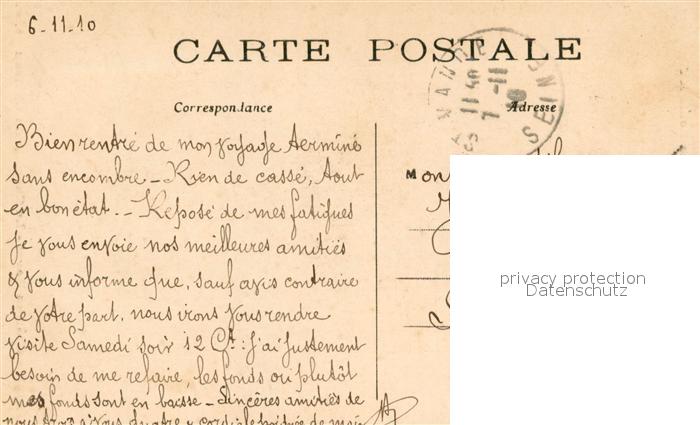 6-11-10
CARTE POSTALE
Correspondance
Adresse
Bien rentré de mon voyage terminé
sans encombre - Rien de cassé, tout
en bon état. - Reposé de mes fatigues
je vous envoie nos meilleures amitiés
& vous informe que, sauf avis contraire
de votre part, nous irons vous rendre
visite Samedi soir 12 Ct: j'ai justement
besoin de me refaire, les fonds ou plutôt
mes fonds sont en baisse - Sincères amitiés de
nous à vous quatre & cordiale poignée de
Mon
privacy protection
Datenschutz